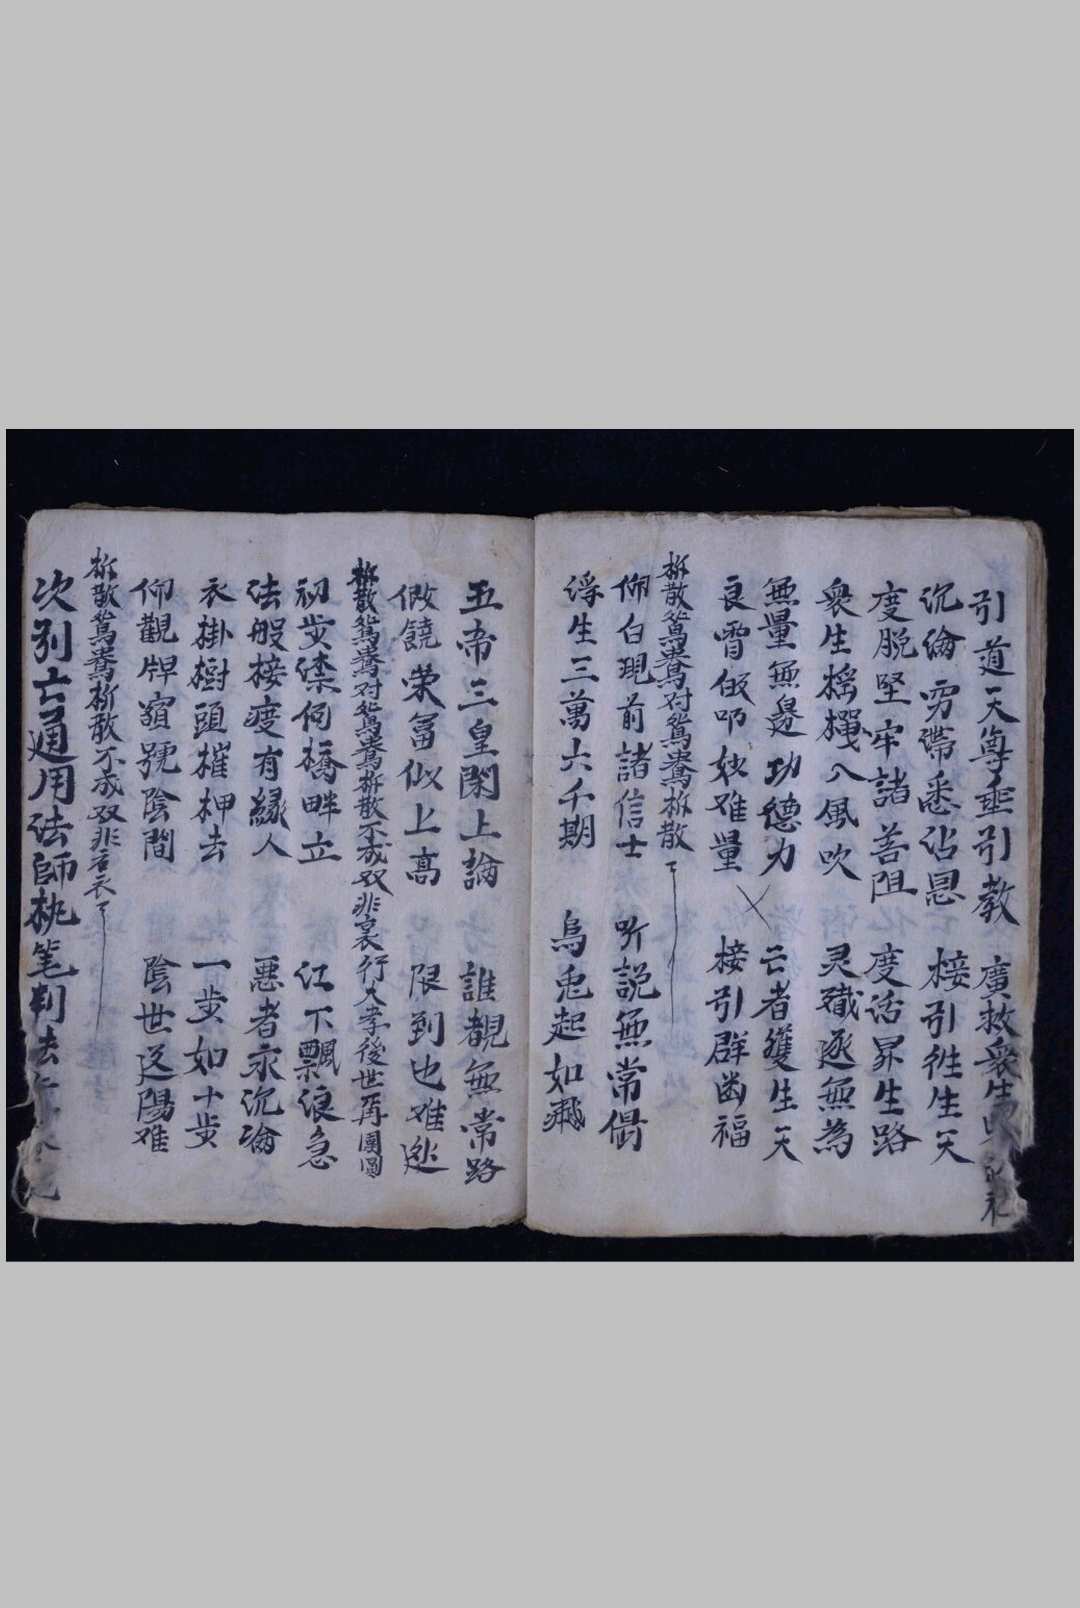 引道天尊垂引教　廣救衆生
沉淪雱霈悉沾恩　接引徃生天
度脱堅牢諸善阻　度活昇生路
衆生權八風吹　灵逐無為
無量無邊功德力　亡者獲生天
良霄俶叩妙难量　接引群幽福
拆散鴛鴦对鴛鴦拆散
仰白現前諸信士　听説無常偈
浮生三萬六千期　烏兎起如飛
五帝三皇閑上論　誰覩無常路
做饒荣冨似上高　限到也难逃
拆散鴛鴦对鴛鴦拆散不成双非裏行大孝後世再團圓
初步㳰何橋畔立　江下飄浪急
法般接度有縁人　惡者永沉淪
衣掛樹頭摧柙去　一步如十步
仰觀牌額號陰間　陰世送陽难
拆散鴛鴦拆散不成双非言衣
次引亡通用法師桃笔判去